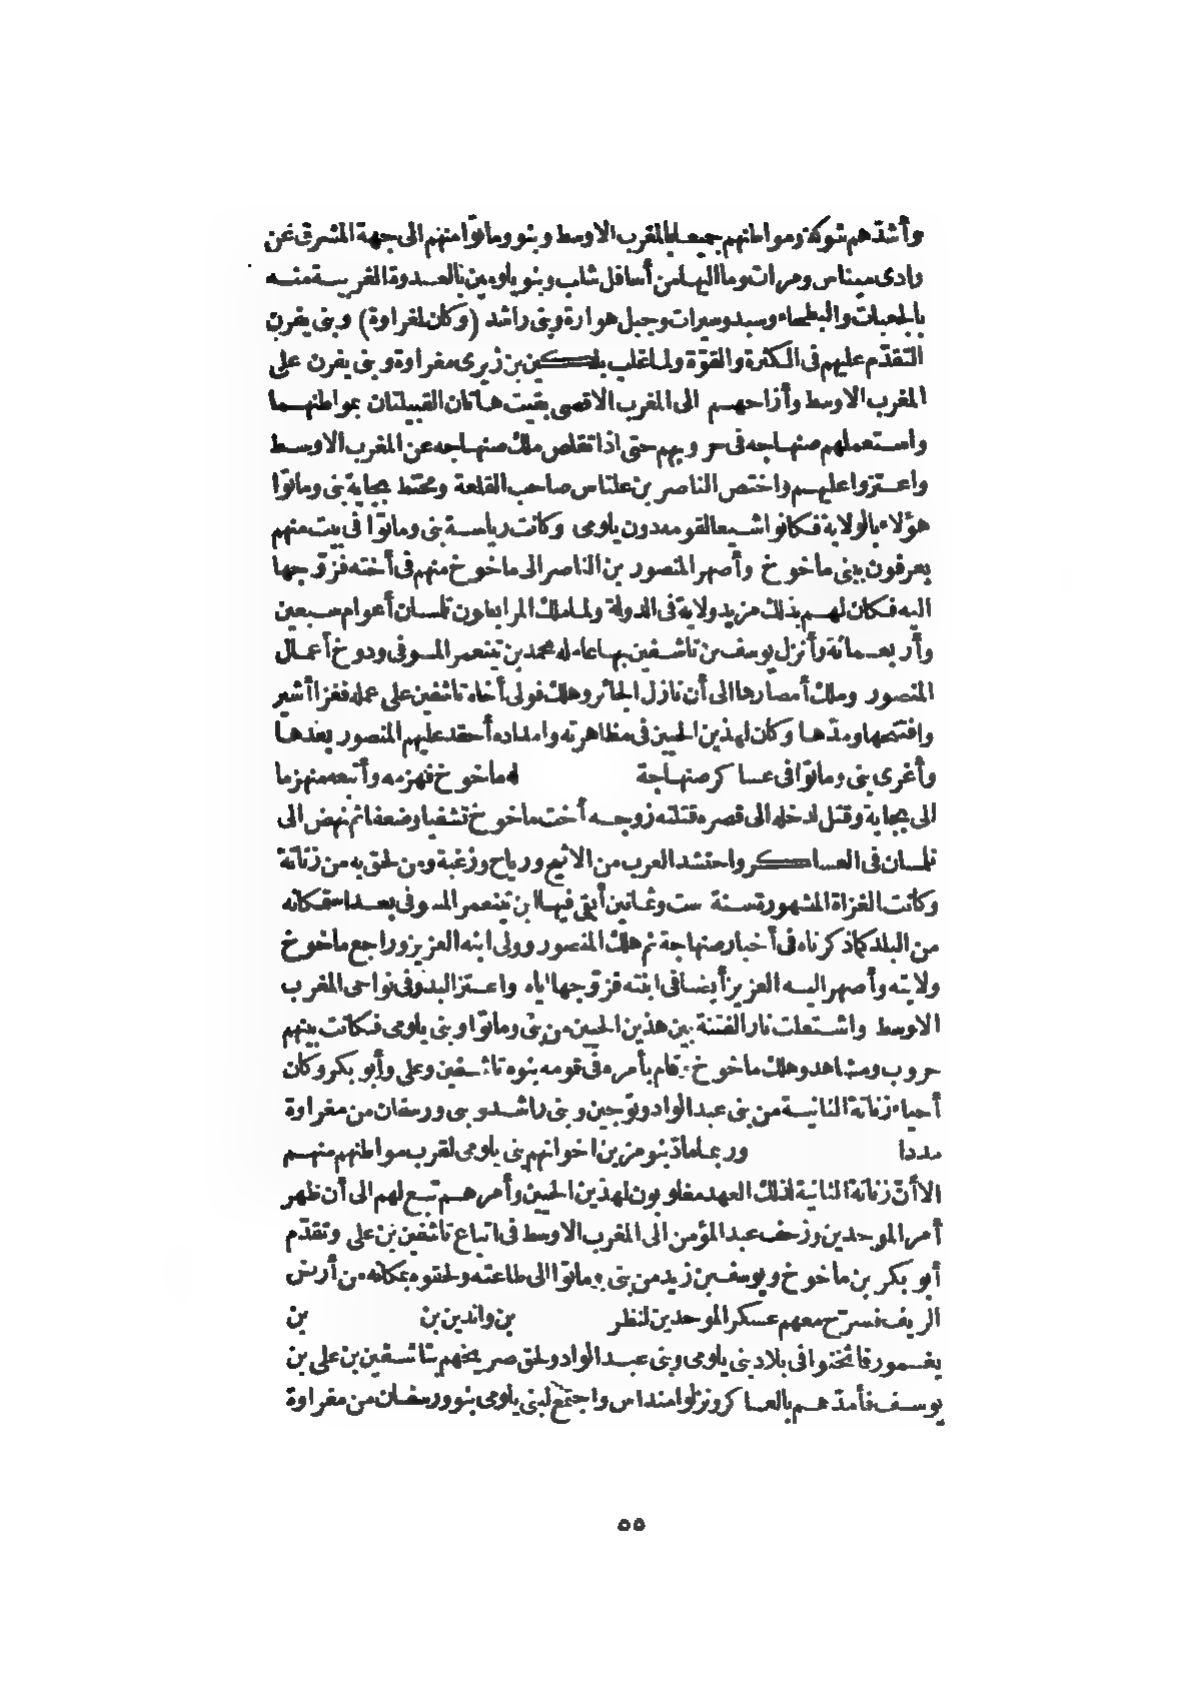 وأشدّهم شوكة ومواطنهم جميعا بالمغرب الاوسط وبنو ومانوّا منهم الى جهة المشرق عن
وادى ميناس ومرات وما اليها من أسافل شلب وبنو يلومين بالعدوة الغربية منه
بالجعبات والبطحاء وسيد وسيرات وجبل هوارة وبنى راشد (وكان لمغراوة) وبنى يفرن
التقدّم عليهم فى الكثرة والقوّة ولما غلب بلكين بن زيرى مغراوة وبنى يفرن على
المغرب الاوسط وأزاحهم الى المغرب الاقصى بقيت هاتان القبيلتان بمواطنهما
واستعملهم صنهاجه فى حروبهم حتى اذا تقلص ملك صنهاجه عن المغرب الاوسط
واعتزوا عليهم واختص الناصر بن علناس صاحب القلعة ومختط بجاية بنى ومانوّا
هؤلاء بالولاية فكانوا شيعا لقومه دون يلومى وكانت رياسة بنى ومانوّا فى بيت منهم
يعرفون ببنى ماخوخ وأصهر المنصور بن الناصر الى ماخوخ منهم فى أخته فزوّجها
اليه فكان لهم بذلك مزيد ولاية فى الدولة ولما ملك المرابطون تلمسان أعوام سبعين
وأربعمائة وأنزل يوسف بن تاشفين بها عامله محمد بن تينعمر المسوفى ودوخ أعمال
المنصور وملك أمصارها الى أن نازل الجزائر وهلك فولى أخاه تاشفين على عمله فغزا أشير
وافتتحها وهدّها وكان لهذين الحيين فى مظاهرته وامداده أحقد عليهم المنصور بعدها
وأغرى بنى ومانوّا فى عساكر صنهاجة له ماخوخ فهزمه وأتبعه منهزما
الى بجاية وقتل لدخله الى قصره قتلته زوجه أخت ماخوخ تشفيا وضعفا ثم نهض الى
تلمسان فى العساكر واحتشد العرب من الاثبج ورياح وزغبة ومن لحق به من زناتة
وكانت الغزاة المشهورة سنة ست وثمانين أبقى فيها ابن تينعمر المسوفى بعد استمكانه
من البلد كما ذكرناه فى أخبار صنهاجة ثم هلك المنصور وولى ابنه العزيز وراجع ماخوخ
ولايته وأصهر اليه العزيز أيضا فى ابنته فزوّجها اياه واعتز البدو فى نواحى المغرب
الاوسط واشتعلت نار الفتنة بين هذين الحيين من بنى ومانوّا وبنى يلومى فكانت بينهم
حروب ومشاهد وهلك ماخوخ وقام بأمره فى قومه بنوه تاشفين وعلى وأبو بكر وكان
أحياء زناتة الثانية من بنى عبد الواد وتوجين وبنى راشد وبنى ورسفان من مغراوة
مددا وربما مادّ بنو مرين اخوانهم بنى يلومى لقرب مواطنهم منهم
الا أنّ زناتة الثانية لذلك العهد مغلوبون لهذين الحيين وأمرهم تبع لهم الى أن ظهر
أمر الموحدين وزحف عبد المؤمن الى المغرب الاوسط فى اتباع تاشفين بن على وتقدّم
أبو بكر بن ماخوخ ويوسف بن زيد من بنى ومانوّا الى طاعته ولحقوه بمكانه من أرض
الريف فسرّح معهم عسكر الموحدين لنظر بن واندين بن بن
يغمور فأثخنوا فى بلاد بنى يلومى وبنى عبد الواد ولحق صريخهم بتاشفين بن على بن
يوسف فأمدّهم بالعساكر ونزلوا منداس واجتمع لبنى يلومى بنو ورسفان من مغراوة
٥٥